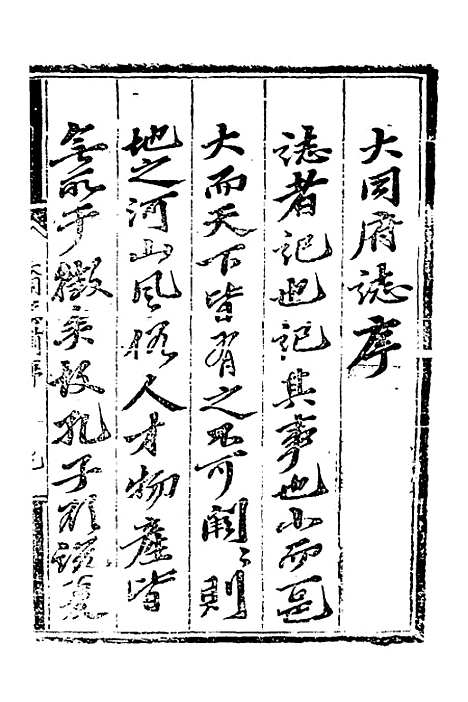 大同府誌序
誌者記也記其事也小而邑
大而天下皆有之不可闕闕則
地之河山風俗人才物產皆
無所于徵矣故孔子欲說夏